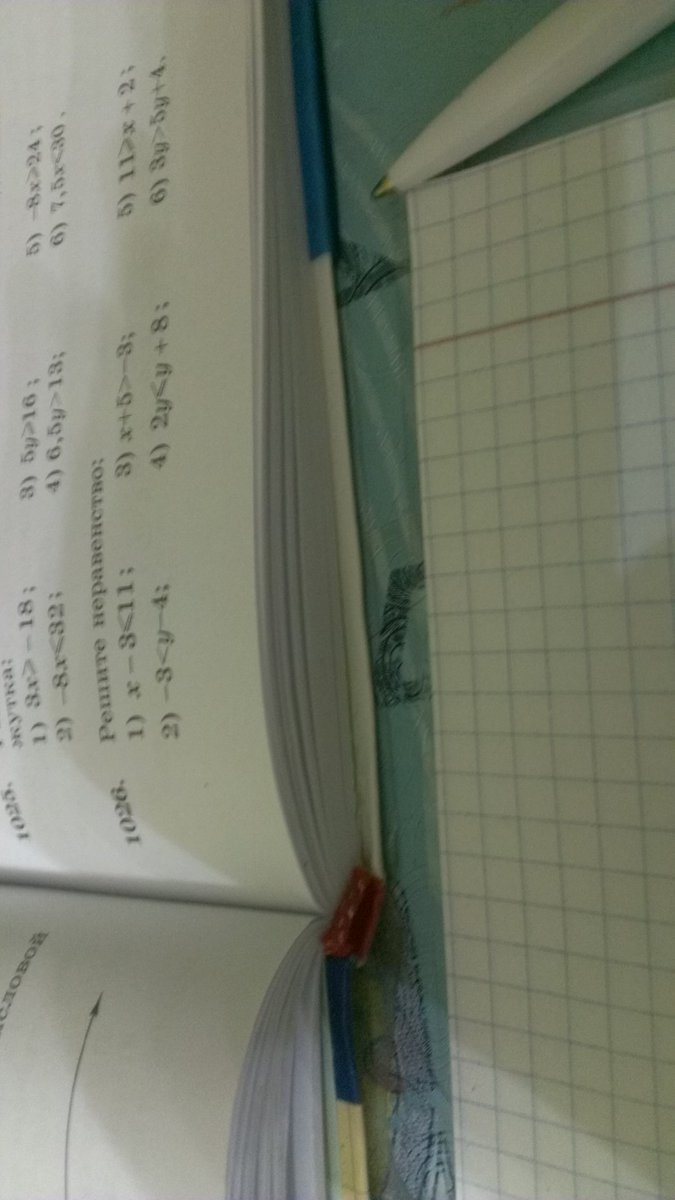 словой
1025.
жутка:
1) 3x>−18; 3) 5y⩾16; 5) −8x⩾24;
2) −8x⩽32; 4) 6,5y>13; 6) 7,5x<30.
1026. Решите неравенство:
1) x − 3<11; 3) x+5>−3; 5) 11⩾x + 2;
2) −3<y−4; 4) 2y⩽y + 8; 6) 3y>5y+4.